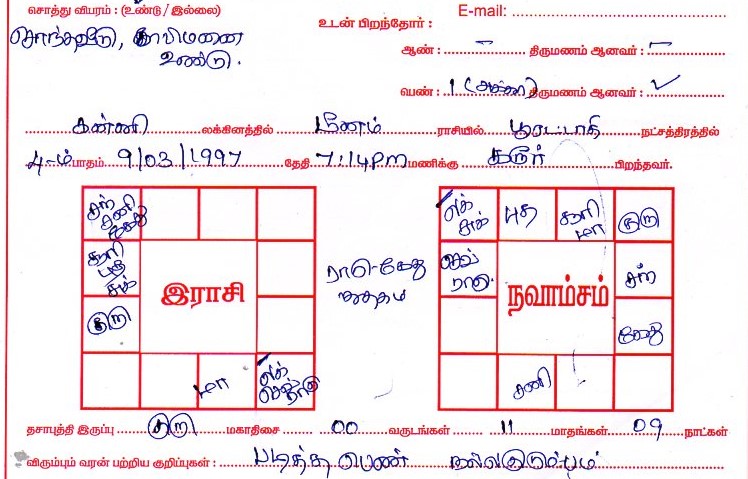 சொத்து விபரம் : (உண்டு / இல்லை)
E-mail:
சொந்தவீடு, காலிமனை
உண்டு.
உடன் பிறந்தோர் :
ஆண் : – திருமணம் ஆனவர் : –
பெண் : 1 (அக்கா) திருமணம் ஆனவர் : ✓
கன்னி லக்கினத்தில் மீனம் ராசியில் பூரட்டாதி நட்சத்திரத்தில்
4-ம் பாதம் 9/03/1997 தேதி 7:14 Pm மணிக்கு கரூர் பிறந்தவர்.
சந் சனி கேது
சூரி புத சுக்
குரு
மா
லக் செவ் ராகு
இராசி
ராகு-கேது
ஜாதகம்
லக் சுக்
புத
சூரி மா
குரு
செவ் ராகு
சந்
கேது
சனி
நவாம்சம்
தசாபுத்தி இருப்பு குரு மகாதிசை 00 வருடங்கள் 11 மாதங்கள் 09 நாட்கள்
விரும்பும் வரன் பற்றிய குறிப்புகள் : படித்த பெண் நல்லகுடும்பம்